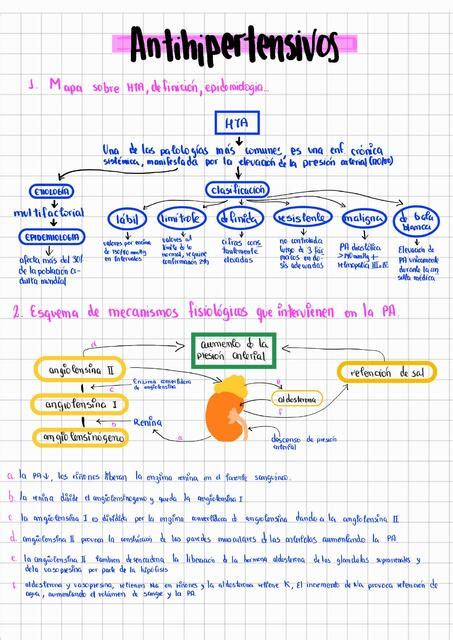 Antihipertensivos
1. Mapa sobre HTA, definición, epidemiologia...
HTA
Una de las patologías más comunes, es una enf. crónica
sistémica, manifestada por la elevación de la presión arterial
ETIOLOGÍA
clasificación
multifactorial
EPIDEMIOLOGÍA
afecta más del 30%
de la población a-
dulta mundial
lábil
limítrofe
definida
resistente
maligna
de bata
blanca
valores por encima
de 130/90 mmHg
en intervalos
valores al
límite de lo
normal, requiere
confirmación
cifras cons
tantemente
elevadas
no controlada
luego de 3 fár
macos en do-
sis adecuadas
PA diastólica
retinopatía III o IV
Elevación de
PA únicamente
durante la con
sulta médica
2. Esquema de mecanismos fisiológicos que intervienen en la PA.
aumento d la
presión arterial
angiotensina II
retención de sal
c Enzima convertidora
de angiotensina
e
aldosterona
f
angiotensina I
b
Renina
a
angiotensinógeno
descenso de presión
arterial
a. la PA↓, los riñones liberan la enzima renina en el torrente sanguíneo.
b. la renina divide el angiotensinogeno y queda la angiotensina I
c. la angiotensina I es dividida por la enzima convertidora de angiotensina dando a la angiotensina II
d. angiotensina II provoca la constricción de las paredes musculares de las arteriolas aumentando la PA
e. la angiotensina II tambien desencadena la liberación de la hormona aldosterona de las glandulas suprarrenales y
dela vasopresina por parte de la hipófisis
f. aldosterona y vasopresina, retienen Na en riñones y la aldosterona K, El incremento de Na provoca retención de
agua, aumentando el volúmen de sangre y la PA.